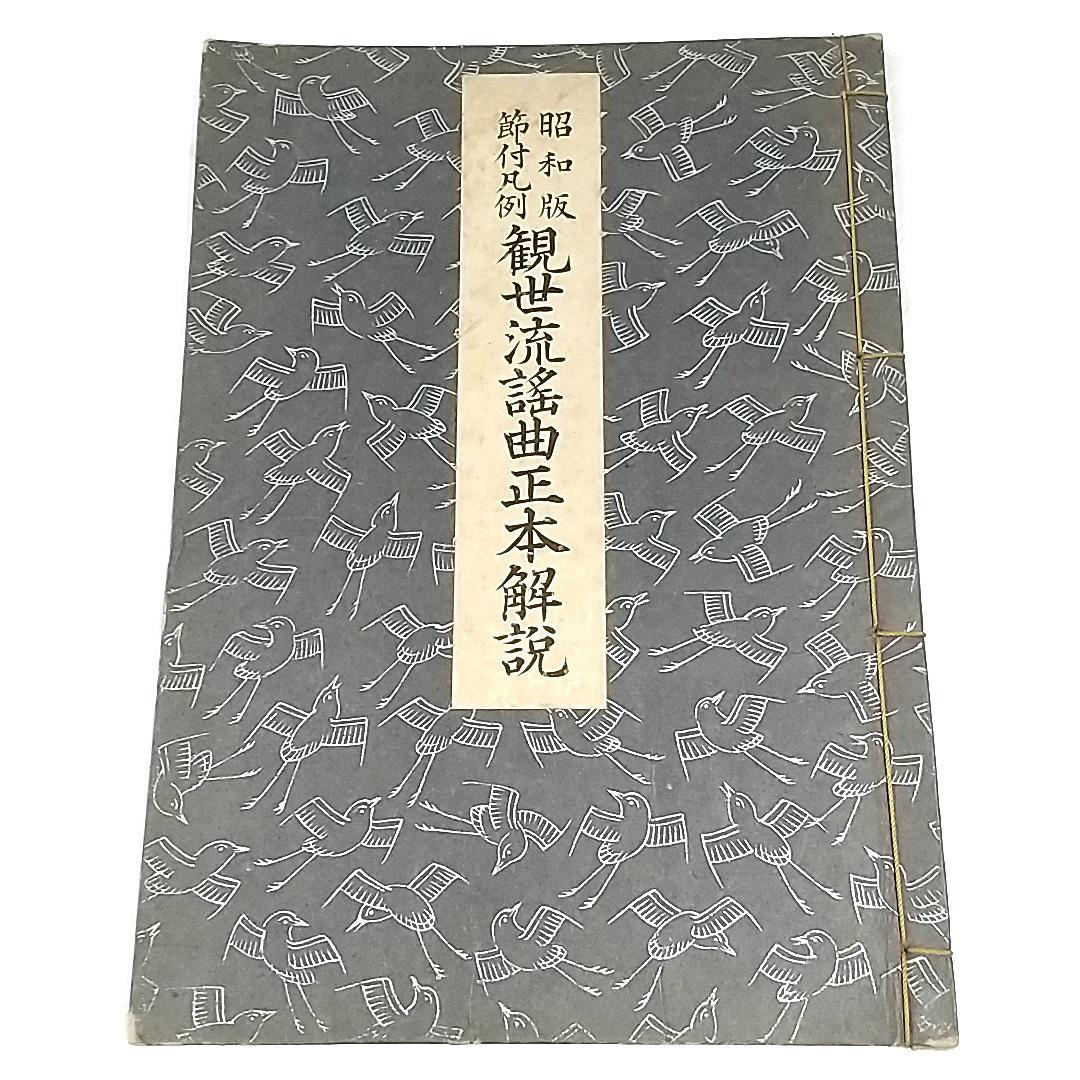 昭和版
節付凡例
観世流謡曲正本解説